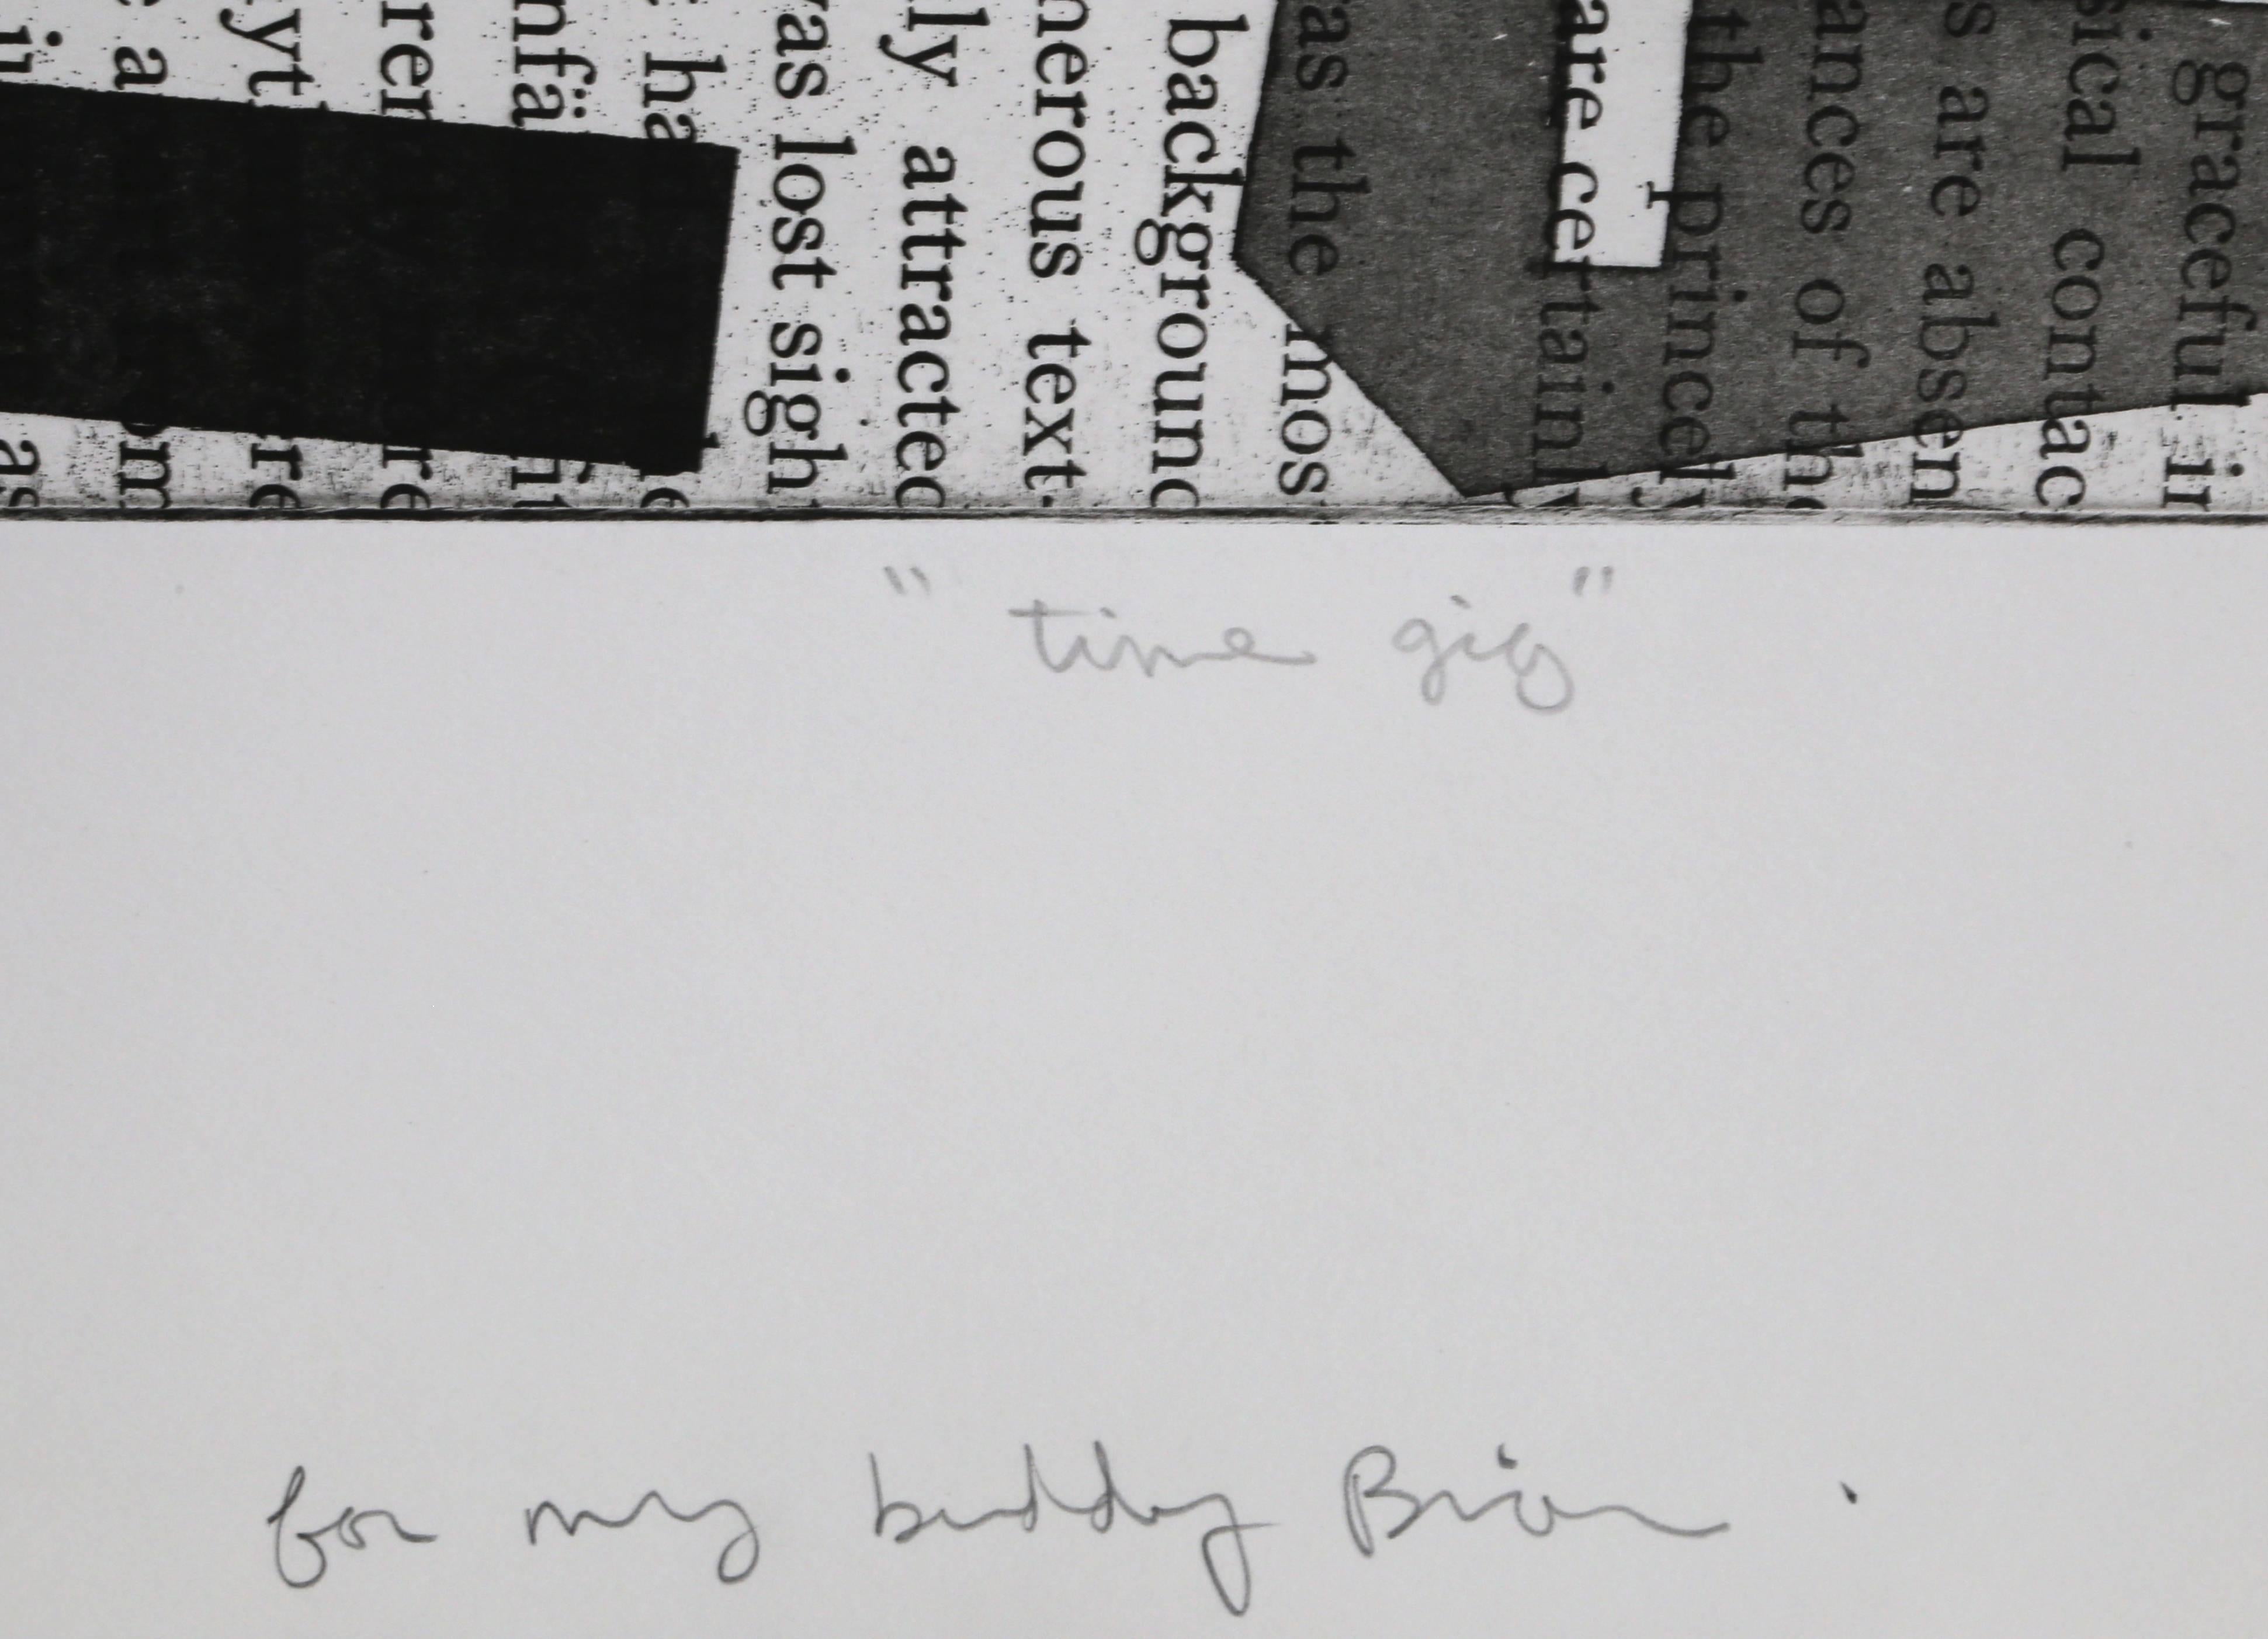 graceful in
sical contac
s are absen
ances of the
the princely
are certainly
as the mos
background
nerous text.
ly attracted
as lost sigh
ha
nfä
rer re
yt re
a om
as
" time gig "
for my buddy Brian .